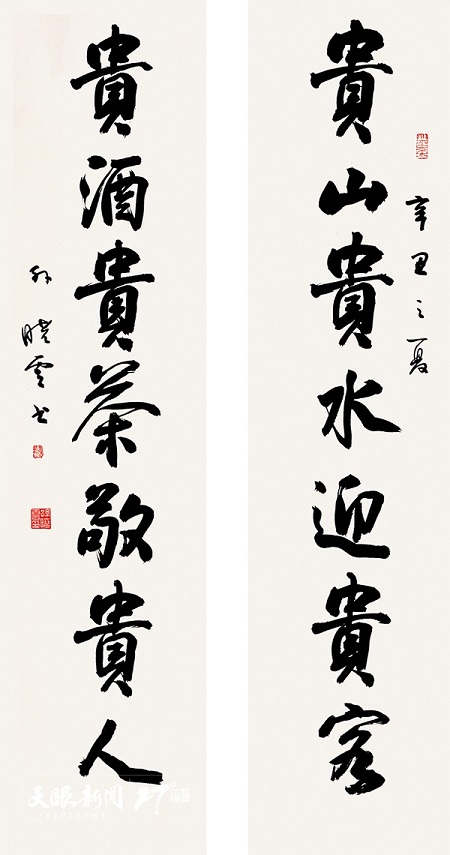 辛丑之夏
貴山貴水迎貴客
貴酒貴茶敬貴人
孙晓雲书
天眼新闻
eyesnews